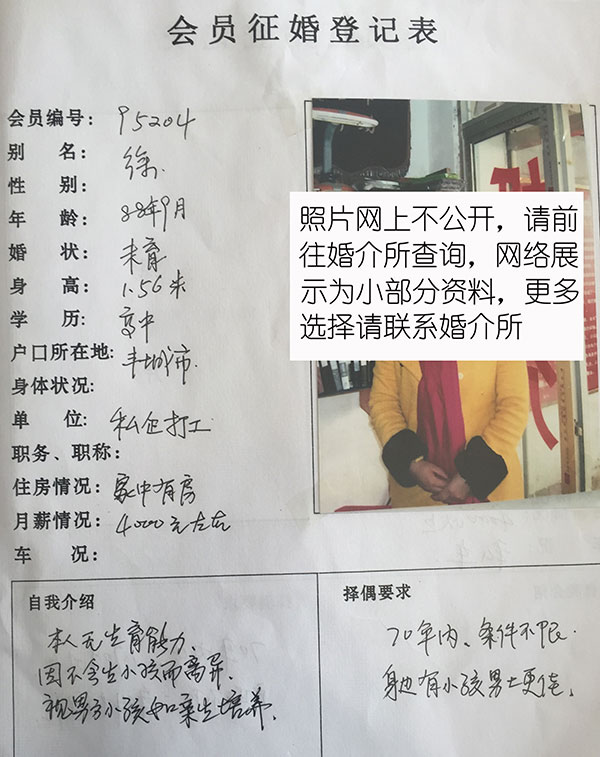 会员征婚登记表
会员编号: 95204
别 名: 徐.
性 别:
年 龄: 88年9月
婚 状: 未育
身 高: 1.56米
学 历: 高中
户口所在地: 丰城市.
身体状况:
单 位: 私企打工
职务、职称:
住房情况: 家中有房
月薪情况: 4000元左右
车 况:
照片网上不公开，请前
往婚介所查询，网络展
示为小部分资料，更多
选择请联系婚介所
自我介绍
本人无生育能力.
因不会生小孩而离异.
视男方小孩如亲生培养.
择偶要求
70年内、条件不限.
身边有小孩男士更佳.